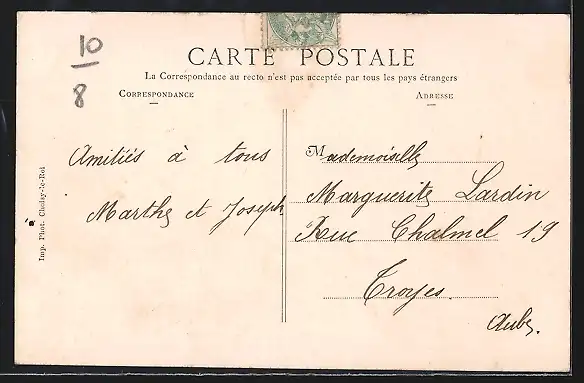 10
8
CARTE POSTALE
La Correspondance au recto n'est pas acceptée par tous les pays étrangers
CORRESPONDANCE
ADRESSE
Amitiés à tous
Marthe et Joseph
Mademoiselle
Marguerite Lardin
Rue Chalmel 19
Troyes.
Aube.
Imp. Phot. Choisy-le-Roi